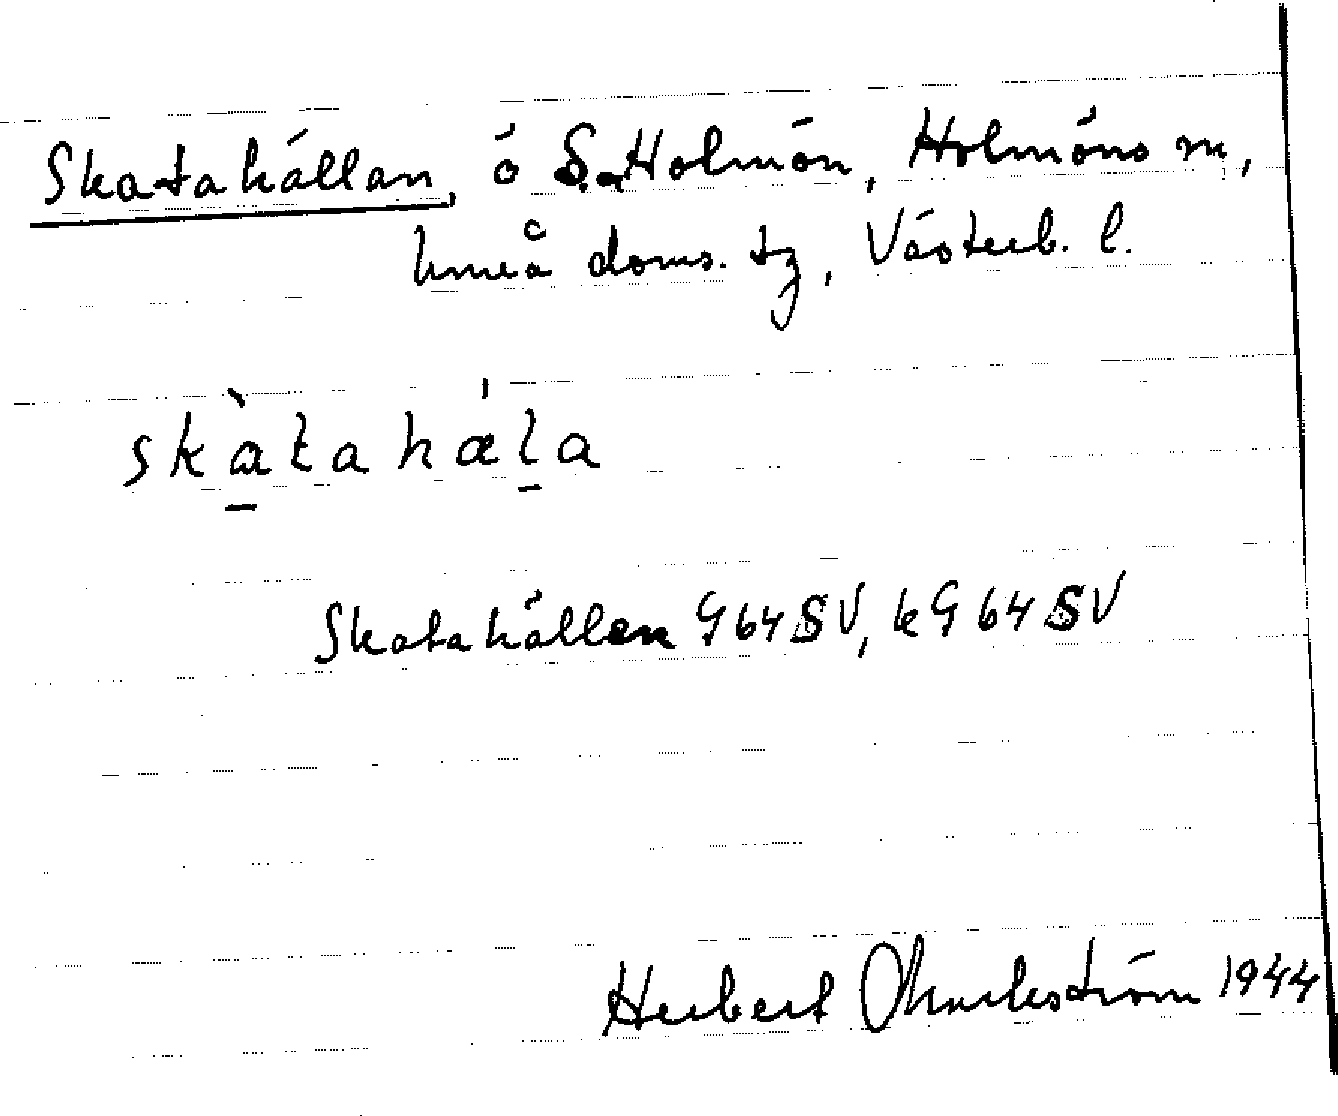 Skatahällan, ö S. Holmön, Holmöns sn,
Umeå doms. tg, Västerb. l.
skàtahǽla
Skatahällan G64SV, kG64SV
Herbert Markström 1944